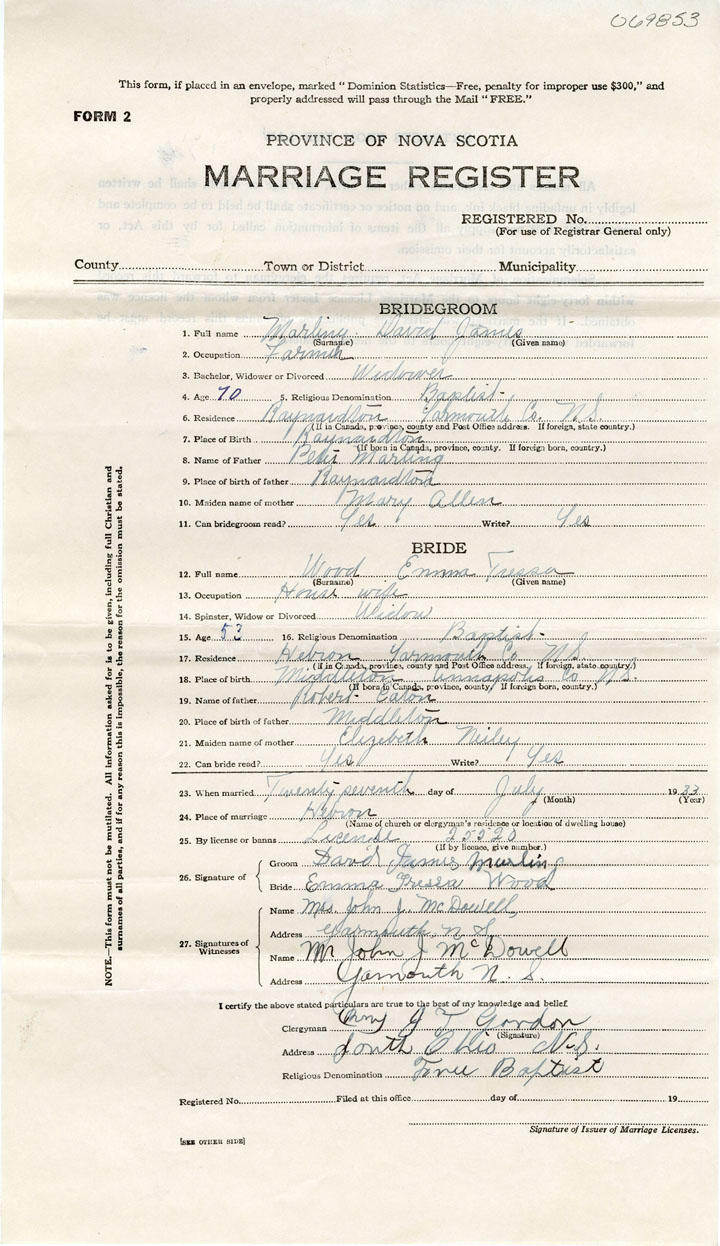 069853
This form, if placed in an envelope, marked "Dominion Statistics—Free, penalty for improper use $300," and
properly addressed will pass through the Mail "FREE."
FORM 2
PROVINCE OF NOVA SCOTIA
MARRIAGE REGISTER
REGISTERED No.
(For use of Registrar General only)
County Town or District Municipality
BRIDEGROOM
1. Full name Marling David James
(Surname) (Given name)
2. Occupation Farmer
3. Bachelor, Widower or Divorced Widower
4. Age 70 5. Religious Denomination Baptist
6. Residence Raynardton Yarmouth Co. N.S.
(If in Canada, province, county and Post Office address. If foreign, state country.)
7. Place of Birth Raynardton
(If born in Canada, province, county. If foreign born, country.)
8. Name of Father Peter Marling
9. Place of birth of father Raynardton
10. Maiden name of mother Mary Allen
11. Can bridegroom read? Yes Write? Yes
BRIDE
12. Full name Wood Emma Tressa
(Surname) (Given name)
13. Occupation House wife
14. Spinster, Widow or Divorced Widow
15. Age 53 16. Religious Denomination Baptist
17. Residence Hebron Yarmouth Co N.S.
(If in Canada, province, county and Post Office address. If foreign, state country.)
18. Place of birth Middleton Annapolis Co N.S.
(If born in Canada, province, county. If foreign born, country.)
19. Name of father Robert Eaton
20. Place of birth of father Middleton
21. Maiden name of mother Elizabeth Neiley
22. Can bride read? Yes Write? Yes
23. When married Twenty seventh day of July 1933
(Month) (Year)
24. Place of marriage Hebron
(Name of church or clergyman's residence or location of dwelling house)
25. By license or banns License 25520
(If by licence, give number.)
26. Signature of
Groom David James Marling
Bride Emma Tressa Wood
27. Signatures of Witnesses
Name Mrs. John J. McDowell
Address Yarmouth, N.S.
Name Mr John J McDowell
Address Yarmouth N. S.
I certify the above stated particulars are true to the best of my knowledge and belief.
Clergyman J T Gordon
(Signature)
Address South Ohio N.S.
Religious Denomination Free Baptist
Registered No. Filed at this office day of 19
Signature of Issuer of Marriage Licenses.
[SEE OTHER SIDE]
NOTE.—This form must not be mutilated. All information asked for is to be given, including full Christian and
surnames of all parties, and if for any reason this is impossible, the reason for the omission must be stated.